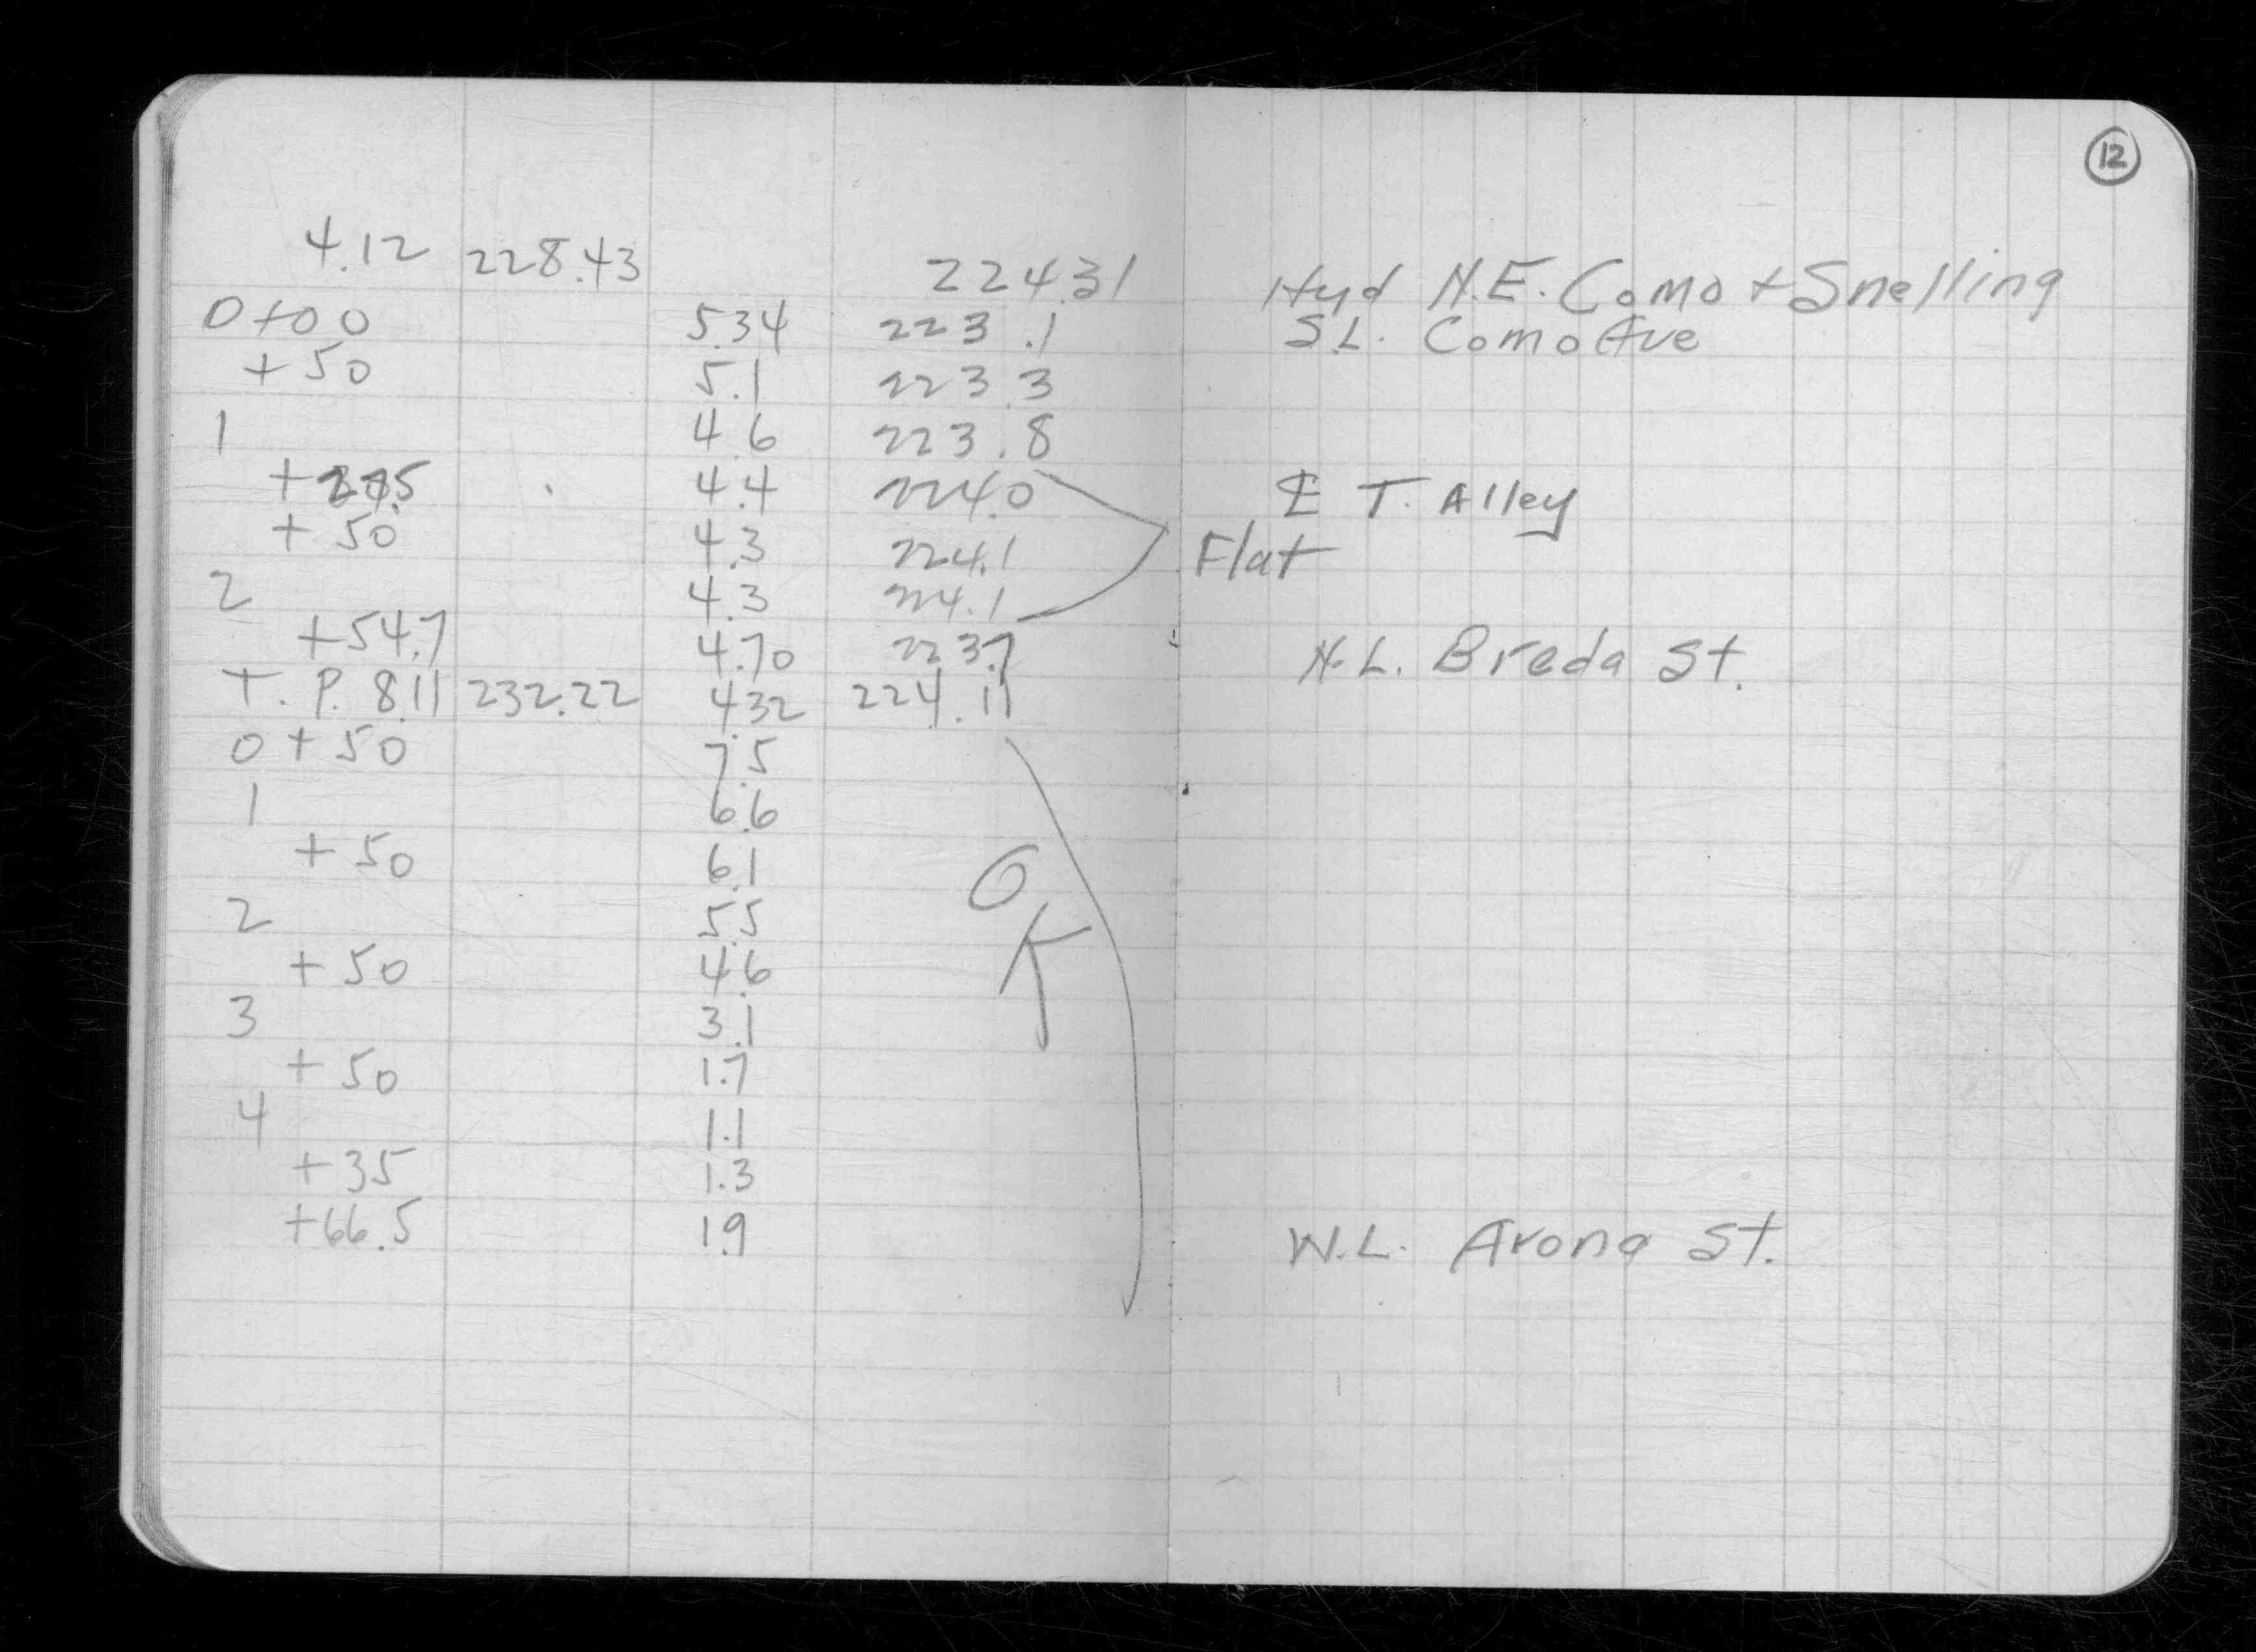 12
4.12 228.43 224.31 Hyd N.E. Como + Snelling
0+00 5.34 223.1 S.L. Como Ave
+50 5.1 223.3
1 4.6 223.8
4.4 224.0 ℄ T. Alley
+50 4.3 224.1 Flat
2 4.3 224.1
+54.7 4.70 223.7 N.L. Breda St.
T.P. 8.11 232.22 4.32 224.11
0+50 7.5
1 6.6
+50 6.1 O
2 5.5 K
+50 4.6
3 3.1
+50 1.7
4 1.1
+35 1.3
+66.5 1.9 W.L. Arona St.